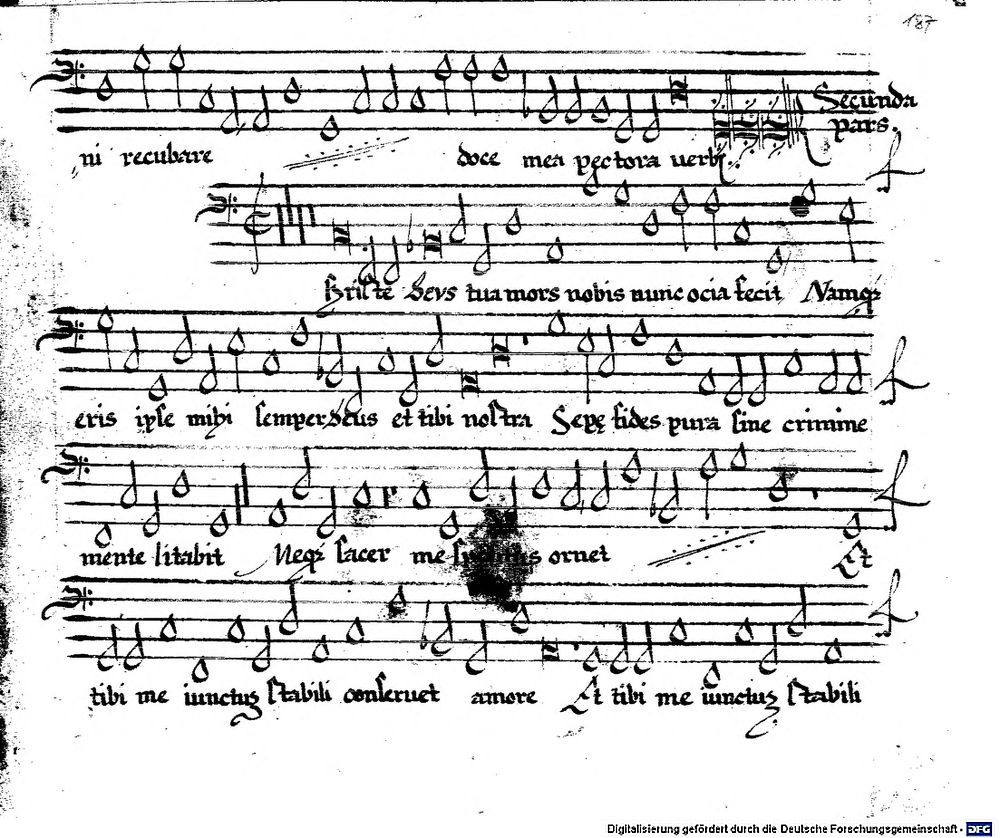 187
Secunda
pars.
ni recubare doce mea pectora uerbi
Christe deus tua mors nobis nunc ocia fecit Namq;
eris ipse mihi semper deus et tibi nostra Sepę fides pura sine crimine
mente litabit Neq; sacer me ornet Et
tibi me iunctus stabili conseruet amore Et tibi me iunctus stabili
Digitalisierung gefördert durch die Deutsche Forschungsgemeinschaft - DFG